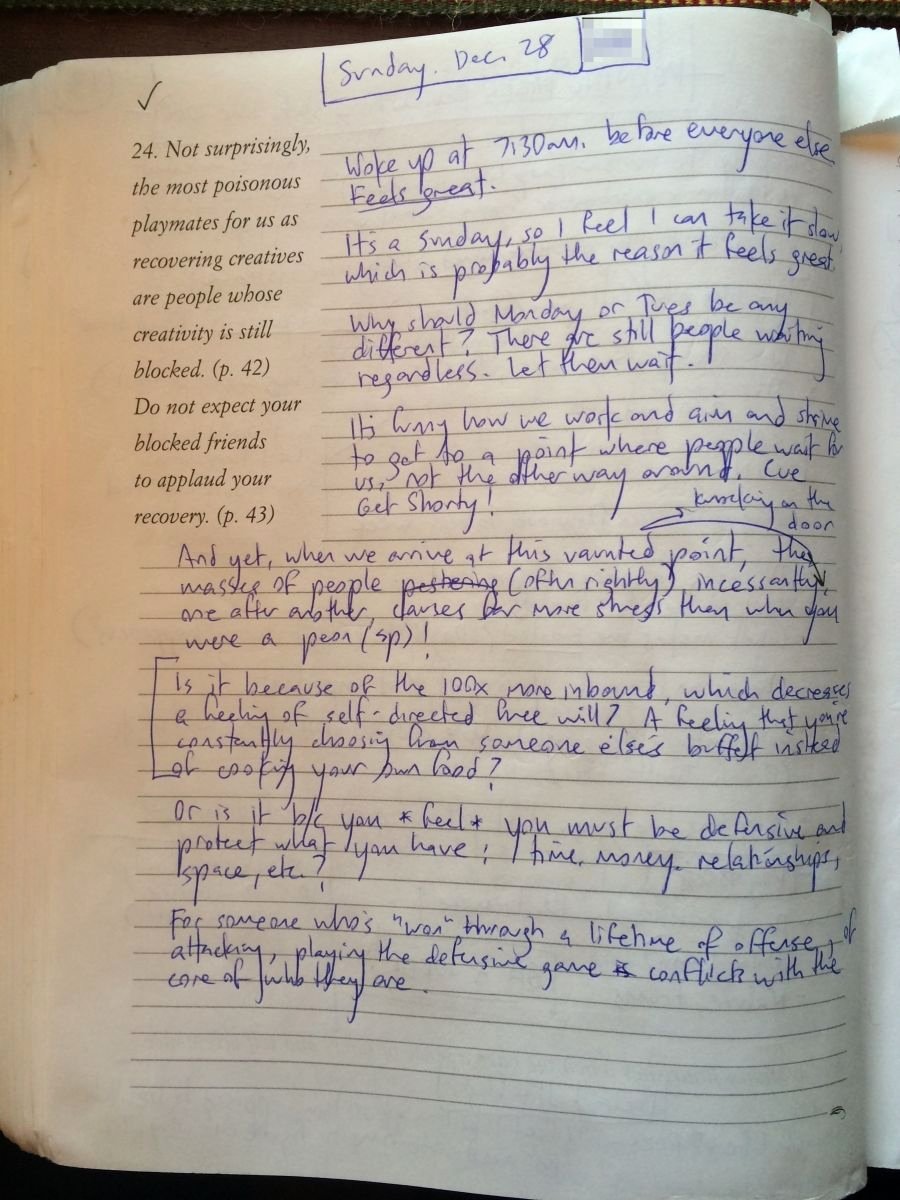 Sunday. Dec. 28
✓
24. Not surprisingly,
the most poisonous
playmates for us as
recovering creatives
are people whose
creativity is still
blocked. (p. 42)
Do not expect your
blocked friends
to applaud your
recovery. (p. 43)
Woke up at 7:30am. before everyone else
Feels great.
It's a Sunday, so I feel I can take it slow,
which is probably the reason it feels great.
Why should Monday or Tues be any
different? There are still people waiting
regardless. Let them wait.
It's funny how we work and aim and strive
to get to a point where people wait for
us, not the other way around. Cue
Get Shorty!
knocking on the
door
And yet, when we arrive at this vaunted point, the
masses of people pestering (often rightly) incessantly,
one after another, causes far more stress than when you
were a peon (sp)!
Is it because of the 100x more inbound, which decreases
a feeling of self-directed free will? A feeling that you're
constantly choosing from someone else's buffet instead
of cooking your own food?
Or is it b/c you *feel* you must be defensive and
protect what you have: time, money, relationships,
space, etc.?
For someone who's "won" through a lifetime of offense, of
attacking, playing the defensive game is conflicts with the
core of who they are.